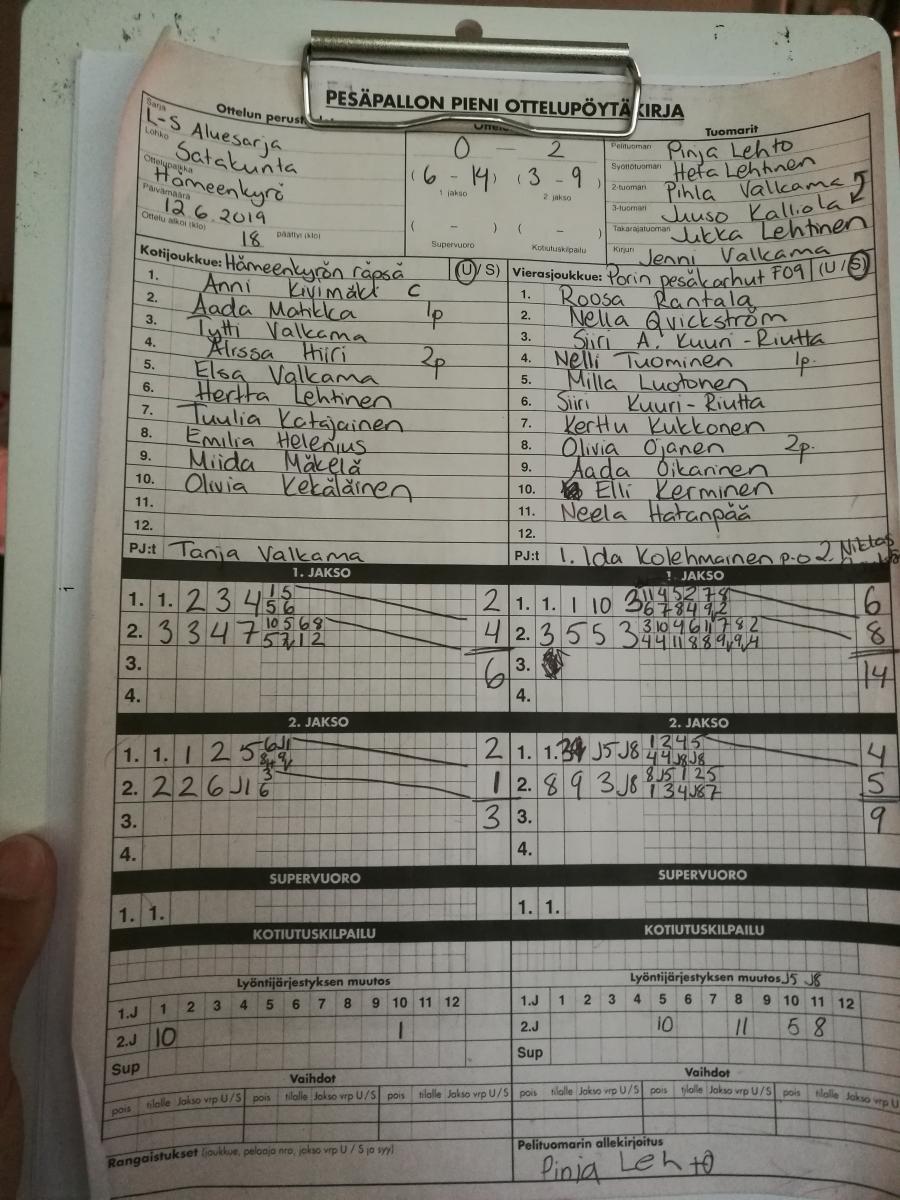 PESÄPALLON PIENI OTTELUPÖYTÄKIRJA
Sarja
L-S Aluesarja
Lohko
Satakunta
Ottelupaikka
Hämeenkyrö
Päivämäärä
12.6.2019
Ottelu alkoi (klo) 18 päättyi (klo)
0 – 2
(6 - 14) (3 - 9)
1 jakso 2 jakso
( - ) ( - )
Supervuoro Kotiutuskilpailu
Tuomarit
Pelituomari Pinja Lehto
Syöttötuomari Heta Lehtinen
2-tuomari Pihla Valkama
3-tuomari Juuso Kalliola
Takarajatuomari Jukka Lehtinen
Kirjuri Jenni Valkama
Kotijoukkue: Hämeenkyrön räpsä (U/S)
1. Anni Kivimäki c
2. Aada Matikka 1p
3. Tytti Valkama
4. Alissa Hiiri 2p
5. Elsa Valkama
6. Hertta Lehtinen
7. Tuulia Katajainen
8. Emilia Helenius
9. Miida Mäkelä
10. Olivia Kekäläinen
11.
12.
PJ:t Tanja Valkama
Vierasjoukkue: Porin pesäkarhut F09 (U/S)
1. Roosa Rantala
2. Nella Qvickström
3. Siiri A. Kuuri-Riutta
4. Nelli Tuominen 1p.
5. Milla Luotonen
6. Siiri Kuuri-Riutta
7. Kerttu Kukkonen
8. Olivia Ojanen 2p.
9. Aada Oikarinen
10. Elli Kerminen
11. Neela Hatanpää
12.
PJ:t 1. Ida Kolehmainen p-o 2. Niklas
1. JAKSO
1. 1. 2 3 4 1 5 2
5 6
2. 3 3 4 7 10 5 6 8 4
3. 6
4.
1. JAKSO
1. 1. 1 10 3 6
2. 3 5 5 3 8
3. 14
4.
2. JAKSO
1. 1. 1 2 5 2
2. 2 2 6 J1 3 1
6
3. 3
4.
2. JAKSO
1. 1. J5 J8 1 2 4 5 4
4 4 J8 J8
2. 8 9 3 J8 8 J5 1 2 5 5
1 3 4 J8 7
3. 9
4.
SUPERVUORO
1. 1.
SUPERVUORO
1. 1.
KOTIUTUSKILPAILU
KOTIUTUSKILPAILU
Lyöntijärjestyksen muutos
1.J 1 2 3 4 5 6 7 8 9 10 11 12
2.J 10 1
Sup
Lyöntijärjestyksen muutos J5 J8
1.J 1 2 3 4 5 6 7 8 9 10 11 12
2.J 10 11 5 8
Sup
Vaihdot
pois tilalle Jakso vrp U/S pois tilalle Jakso vrp U/S pois tilalle Jakso vrp U/S
Vaihdot
pois tilalle Jakso vrp U/S pois tilalle Jakso vrp U/S pois tilalle Jakso vrp U
Rangaistukset (joukkue, pelaaja nro, jakso vrp U / S ja syy)
Pelituomarin allekirjoitus
Pinja Lehto